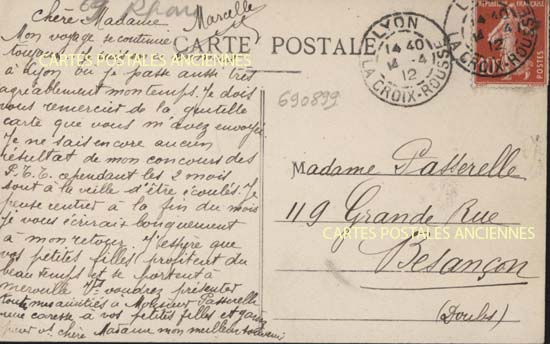 69 Rhône
Chère Madame
Marcelle
Mon voyage se continue
toujours
CARTE POSTALE
CARTES POSTALES ANCIENNES
à Lyon où je passe aussi très
agréablement mon temps. Je dois
vous remercier de la gentille
carte que vous m'avez envoyée
Je ne sais encore aucun
résultat de mon concours des
P.T.T. cependant les 2 mois
sont à la ville d'être écoulés. Je
pense rentrer à la fin du mois
je vous écrirai longuement
à mon retour. J'espère que
vos petites filles profitent du
beau temps et se portent à
merveille. Vs voudrez présenter
toutes mes amitiés à Monsieur Passerelle
une caresse à vos petites filles et
pour vs. chère Madame mon meilleur souvenir
LYON
14 40
14 -4
12
LA CROIX-ROUSSE
POSTES
690899
Madame Passerelle
119 Grande Rue
CARTES POSTALES ANCIENNES
Besançon
(Doubs)